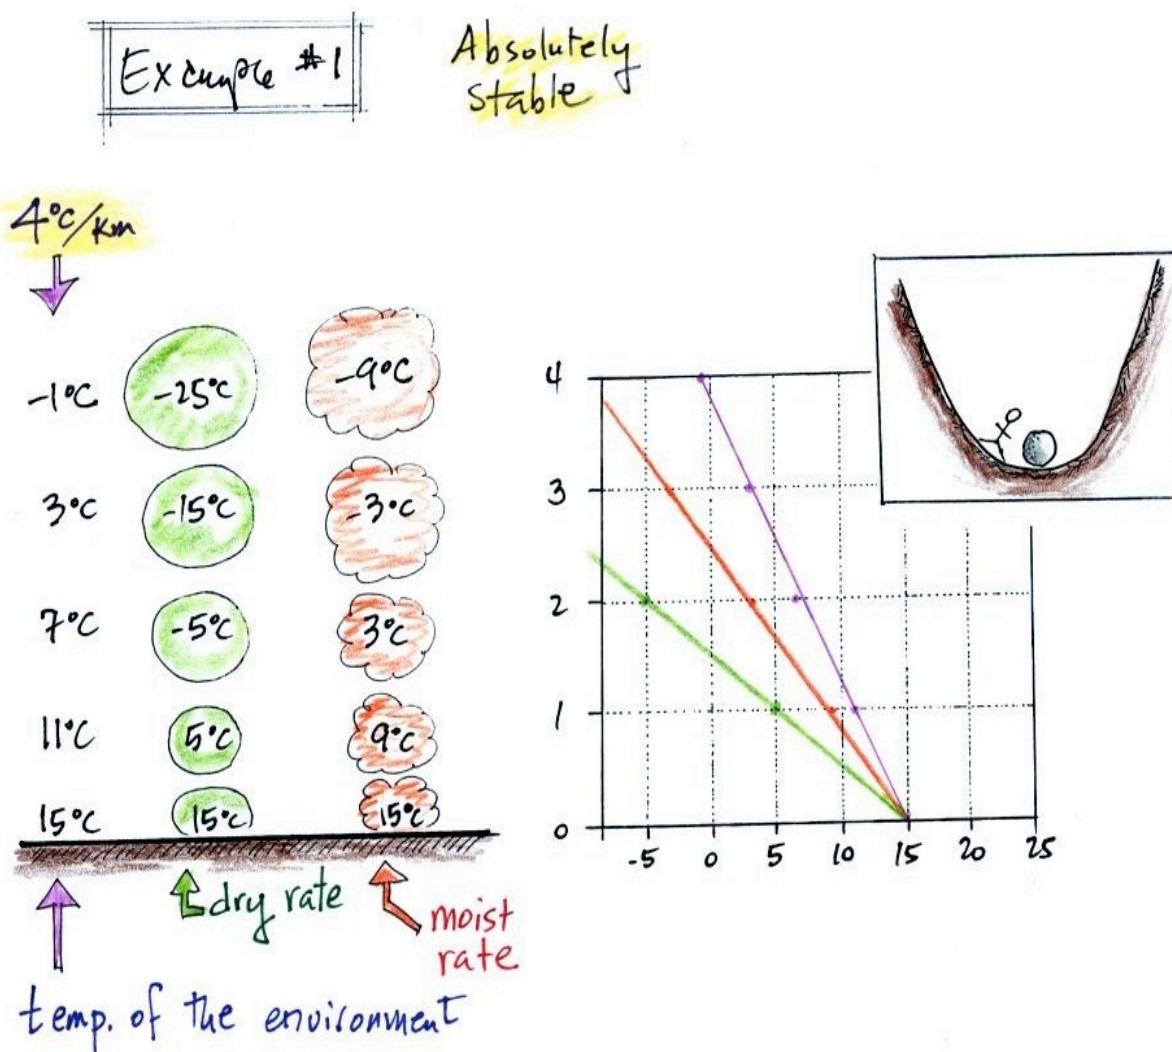 Example #1
Absolutely
stable
4°C/km
-1°C
-25°C
-9°C
3°C
-15°C
-3°C
7°C
-5°C
3°C
11°C
5°C
9°C
15°C
15°C
15°C
dry rate
moist
rate
temp. of the environment
4
3
2
1
0
-5 0 5 10 15 20 25